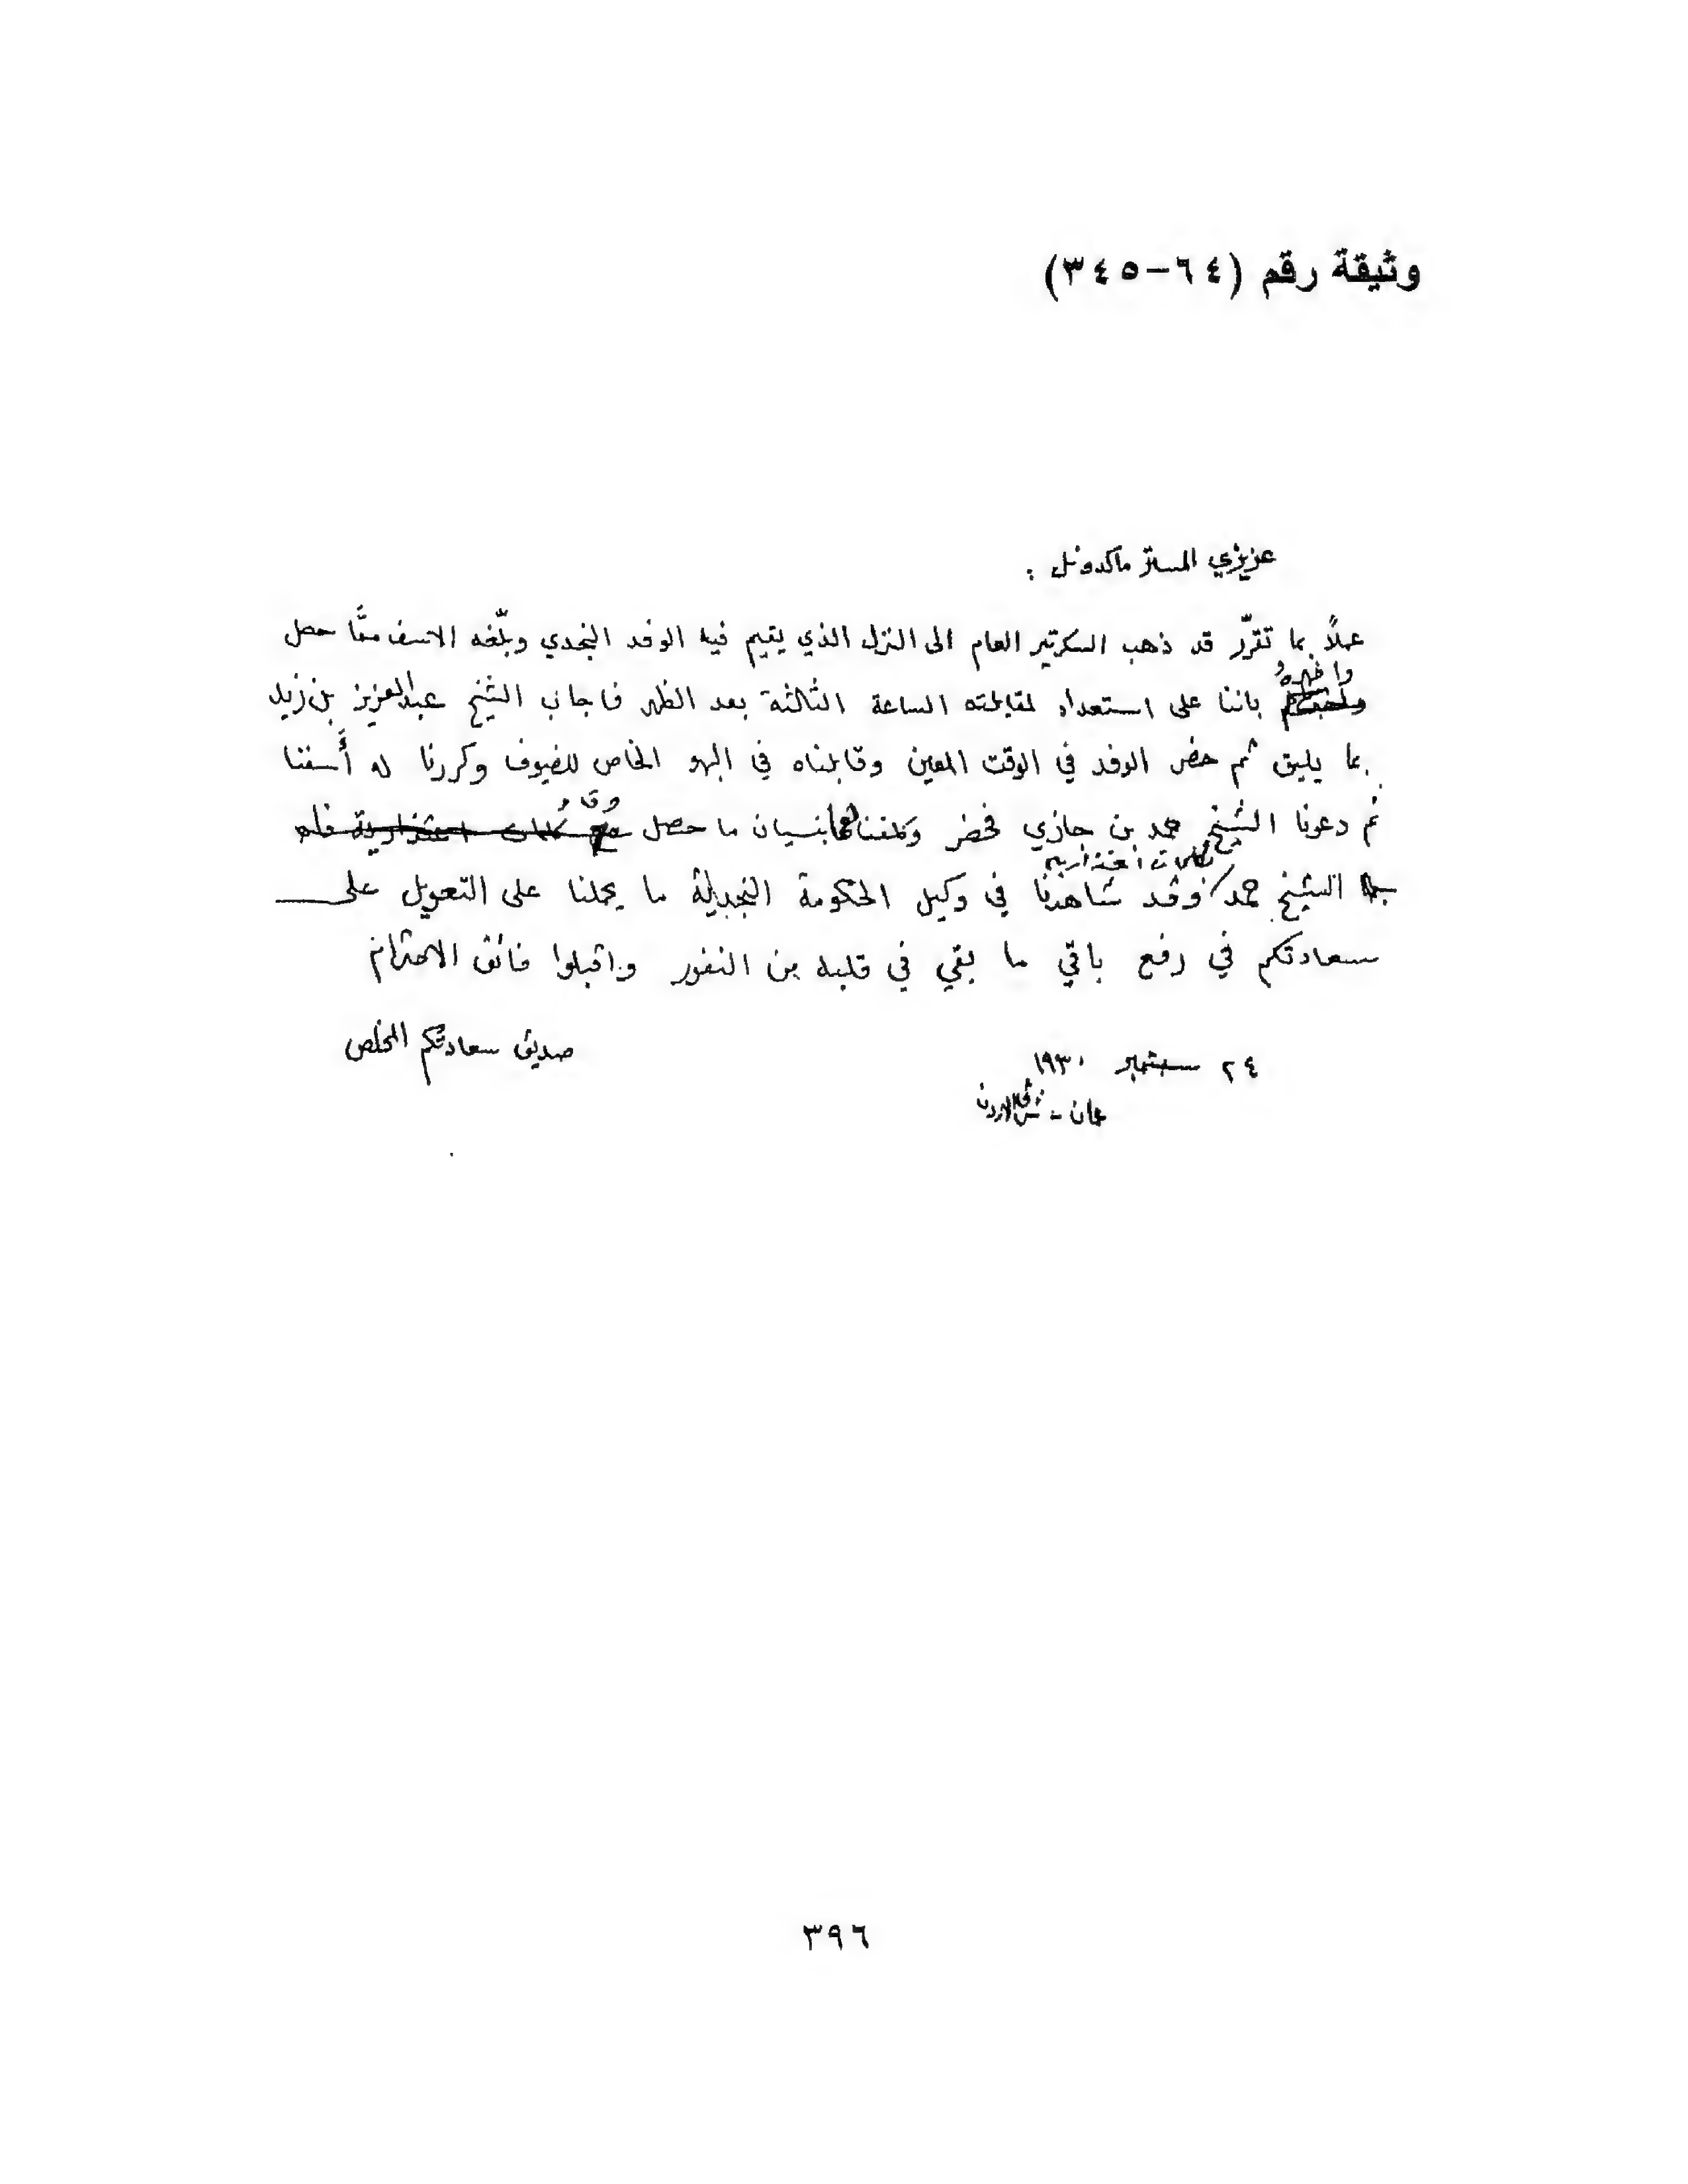 وثيقة رقم (٦٤-٣٤٥)
عزيزي المستر ماكدونل :
عملاً بما تقرّر قد ذهب السكرتير العام الى النزل الذي يقيم فيه الوفد النجدي وبلّغه الاسف ممّا حصل
باننا على استعداد لمقابلته الساعة الثالثة بعد الظهر فاجاب الشيخ عبدالعزيز بن زيد
بما يليق ثم حضر الوفد في الوقت المعين وقابلناه في البهو الخاص للضيوف وكررنا له أسفنا
ثم دعونا الشيخ حمد بن جازي فحضر وكلفناهما بنسيان ما حصل كلمات اعتذارية فاه
كلمات اعتذارية
الشيخ حمد وقد شاهدنا في وكيل الحكومة النجدية ما يحملنا على التعويل على
سعادتكم في رفع باقي ما بقي في قلبه من النفور واقبلوا فائق الاحترام
صديق سعادتكم المخلص
٢٤ سبتمبر ١٩٣٠
عمان - شرق الاردن
٣٩٦